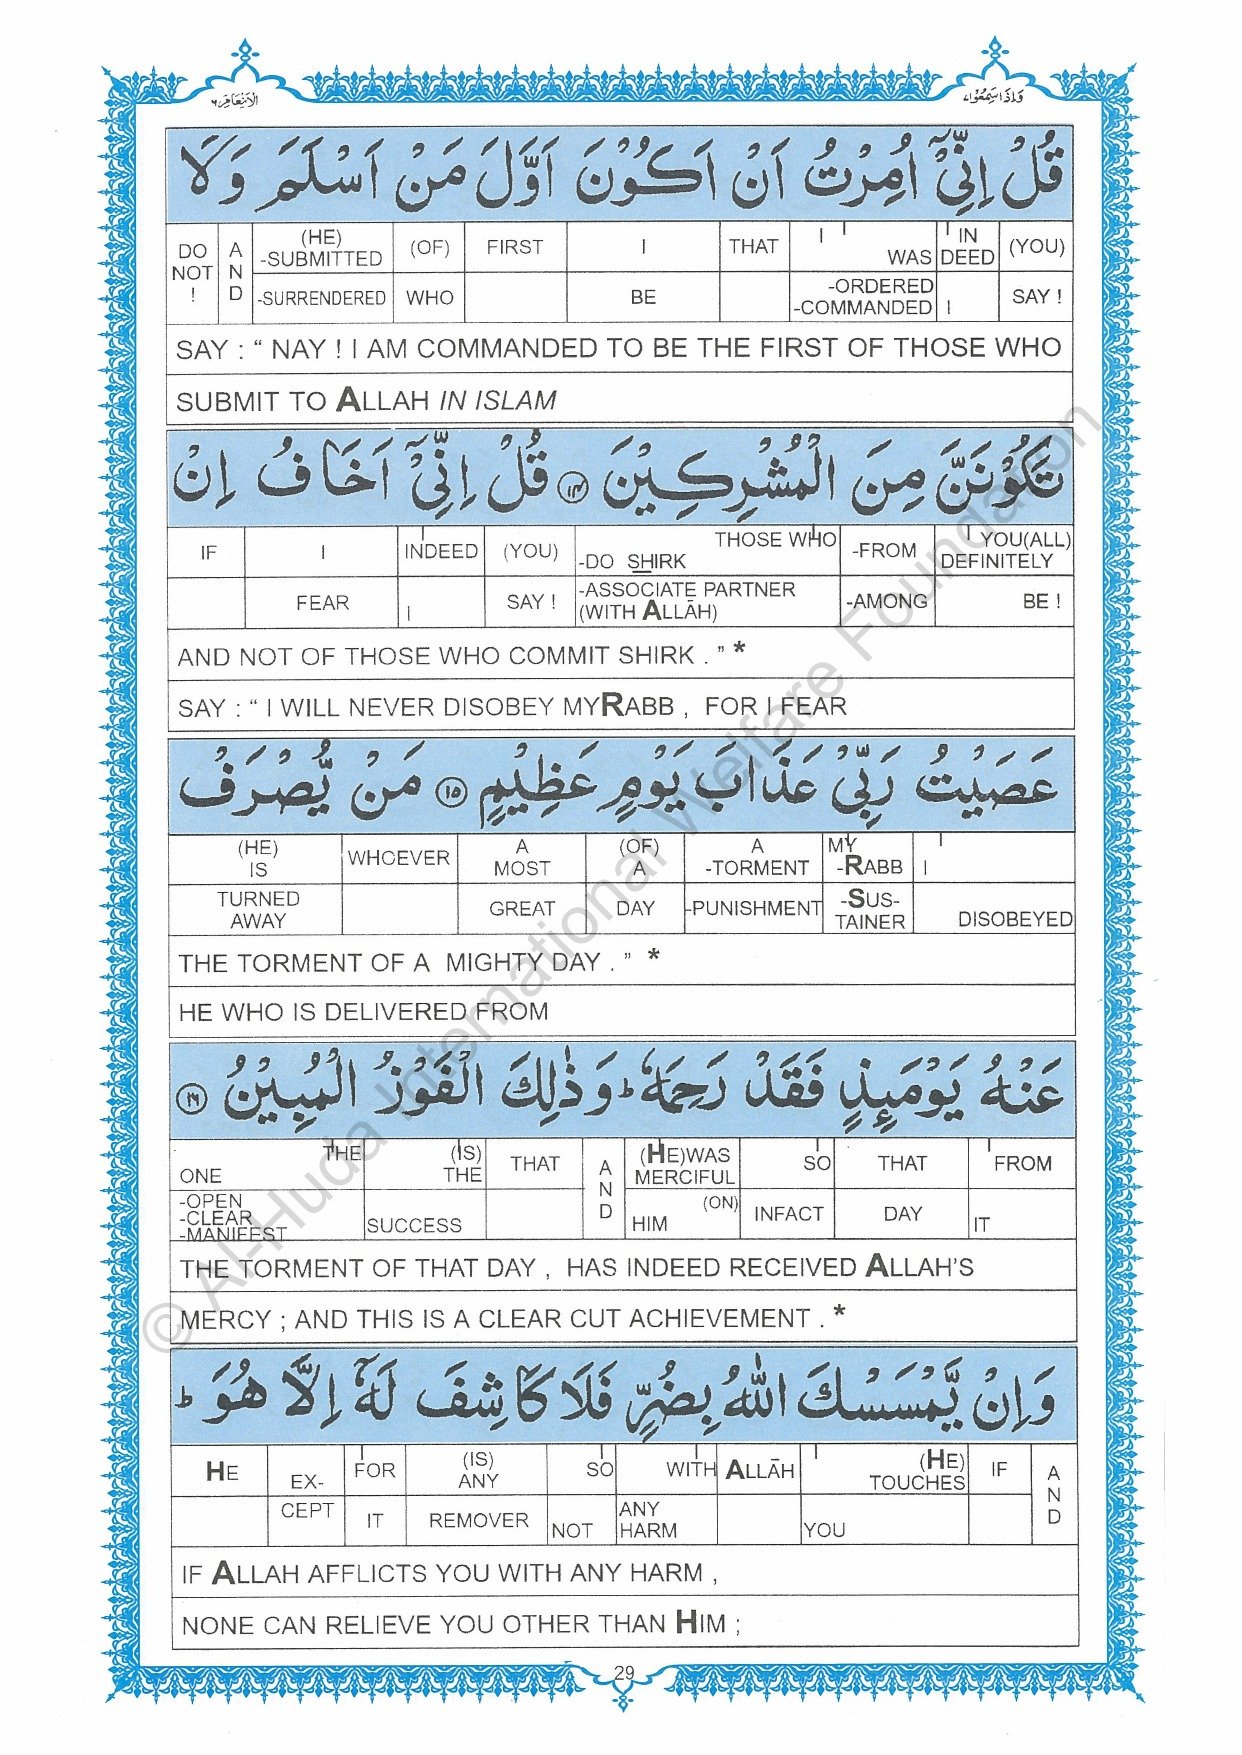 الانعام ٦
واذا سمعوا ٧
قُلْ اِنِّیْۤ اُمِرْتُ اَنْ اَكُوْنَ اَوَّلَ مَنْ اَسْلَمَ وَلَا
DO NOT ! | AND | (HE) -SUBMITTED | (OF) | FIRST | I | THAT | I WAS | IN DEED | (YOU)
-SURRENDERED | WHO | BE | -ORDERED -COMMANDED | I | SAY !
SAY : “ NAY ! I AM COMMANDED TO BE THE FIRST OF THOSE WHO
SUBMIT TO ALLAH IN ISLAM
تَكُوْنَنَّ مِنَ الْمُشْرِكِیْنَ ١٤ قُلْ اِنِّیْۤ اَخَافُ اِنْ
IF | I | INDEED | (YOU) | THOSE WHO -DO SHIRK | -FROM | YOU(ALL) DEFINITELY
FEAR | I | SAY ! | -ASSOCIATE PARTNER (WITH ALLĀH) | -AMONG | BE !
AND NOT OF THOSE WHO COMMIT SHIRK . ” *
SAY : “ I WILL NEVER DISOBEY MYRABB , FOR I FEAR
عَصَیْتُ رَبِّیْ عَذَابَ یَوْمٍ عَظِیْمٍ ١٥ مَنْ یُّصْرَفْ
(HE) IS | WHOEVER | A MOST | (OF) A | A -TORMENT | MY -RABB | I
TURNED AWAY | GREAT | DAY | -PUNISHMENT | -SUS- TAINER | DISOBEYED
THE TORMENT OF A MIGHTY DAY . ” *
HE WHO IS DELIVERED FROM
عَنْهُ یَوْمَىِٕذٍ فَقَدْ رَحِمَهٗ ؕ وَذٰلِكَ الْفَوْزُ الْمُبِیْنُ ١٦
ONE | THE | (IS) THE | THAT | AND | (HE)WAS MERCIFUL | SO | THAT | FROM
-OPEN -CLEAR -MANIFEST | SUCCESS | (ON) HIM | INFACT | DAY | IT
THE TORMENT OF THAT DAY , HAS INDEED RECEIVED ALLAH’S
MERCY ; AND THIS IS A CLEAR CUT ACHIEVEMENT . *
وَاِنْ یَّمْسَسْكَ اللّٰهُ بِضُرٍّ فَلَا كَاشِفَ لَهٗۤ اِلَّا هُوَ ؕ
HE | EX- | FOR | (IS) ANY | SO | WITH | ALLĀH | (HE) TOUCHES | IF | AND
CEPT | IT | REMOVER | NOT | ANY HARM | YOU
IF ALLAH AFFLICTS YOU WITH ANY HARM ,
NONE CAN RELIEVE YOU OTHER THAN HIM ;
29
© Al-Huda International Welfare Foundation